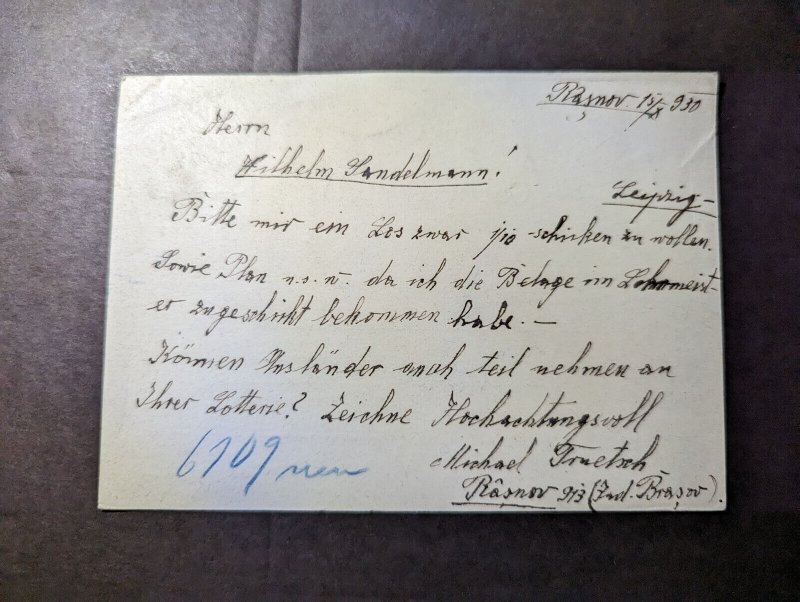 Râșnov 15/X 930
Herrn
Wilhelm Sandelmann!
Leipzig-
Bitte mir ein Los zwar 1/10 schicken zu wollen.
Sowie Plan u.s.w. da ich die Belage im Lohnmeist-
er zugeschikt bekommen habe. —
Können Ausländer auch teil nehmen an
Ihrer Lotterie? Zeichne Hochachtungsvoll
Michael Truetsch
Râșnov 913 (Jud. Brașov).
6109 neu